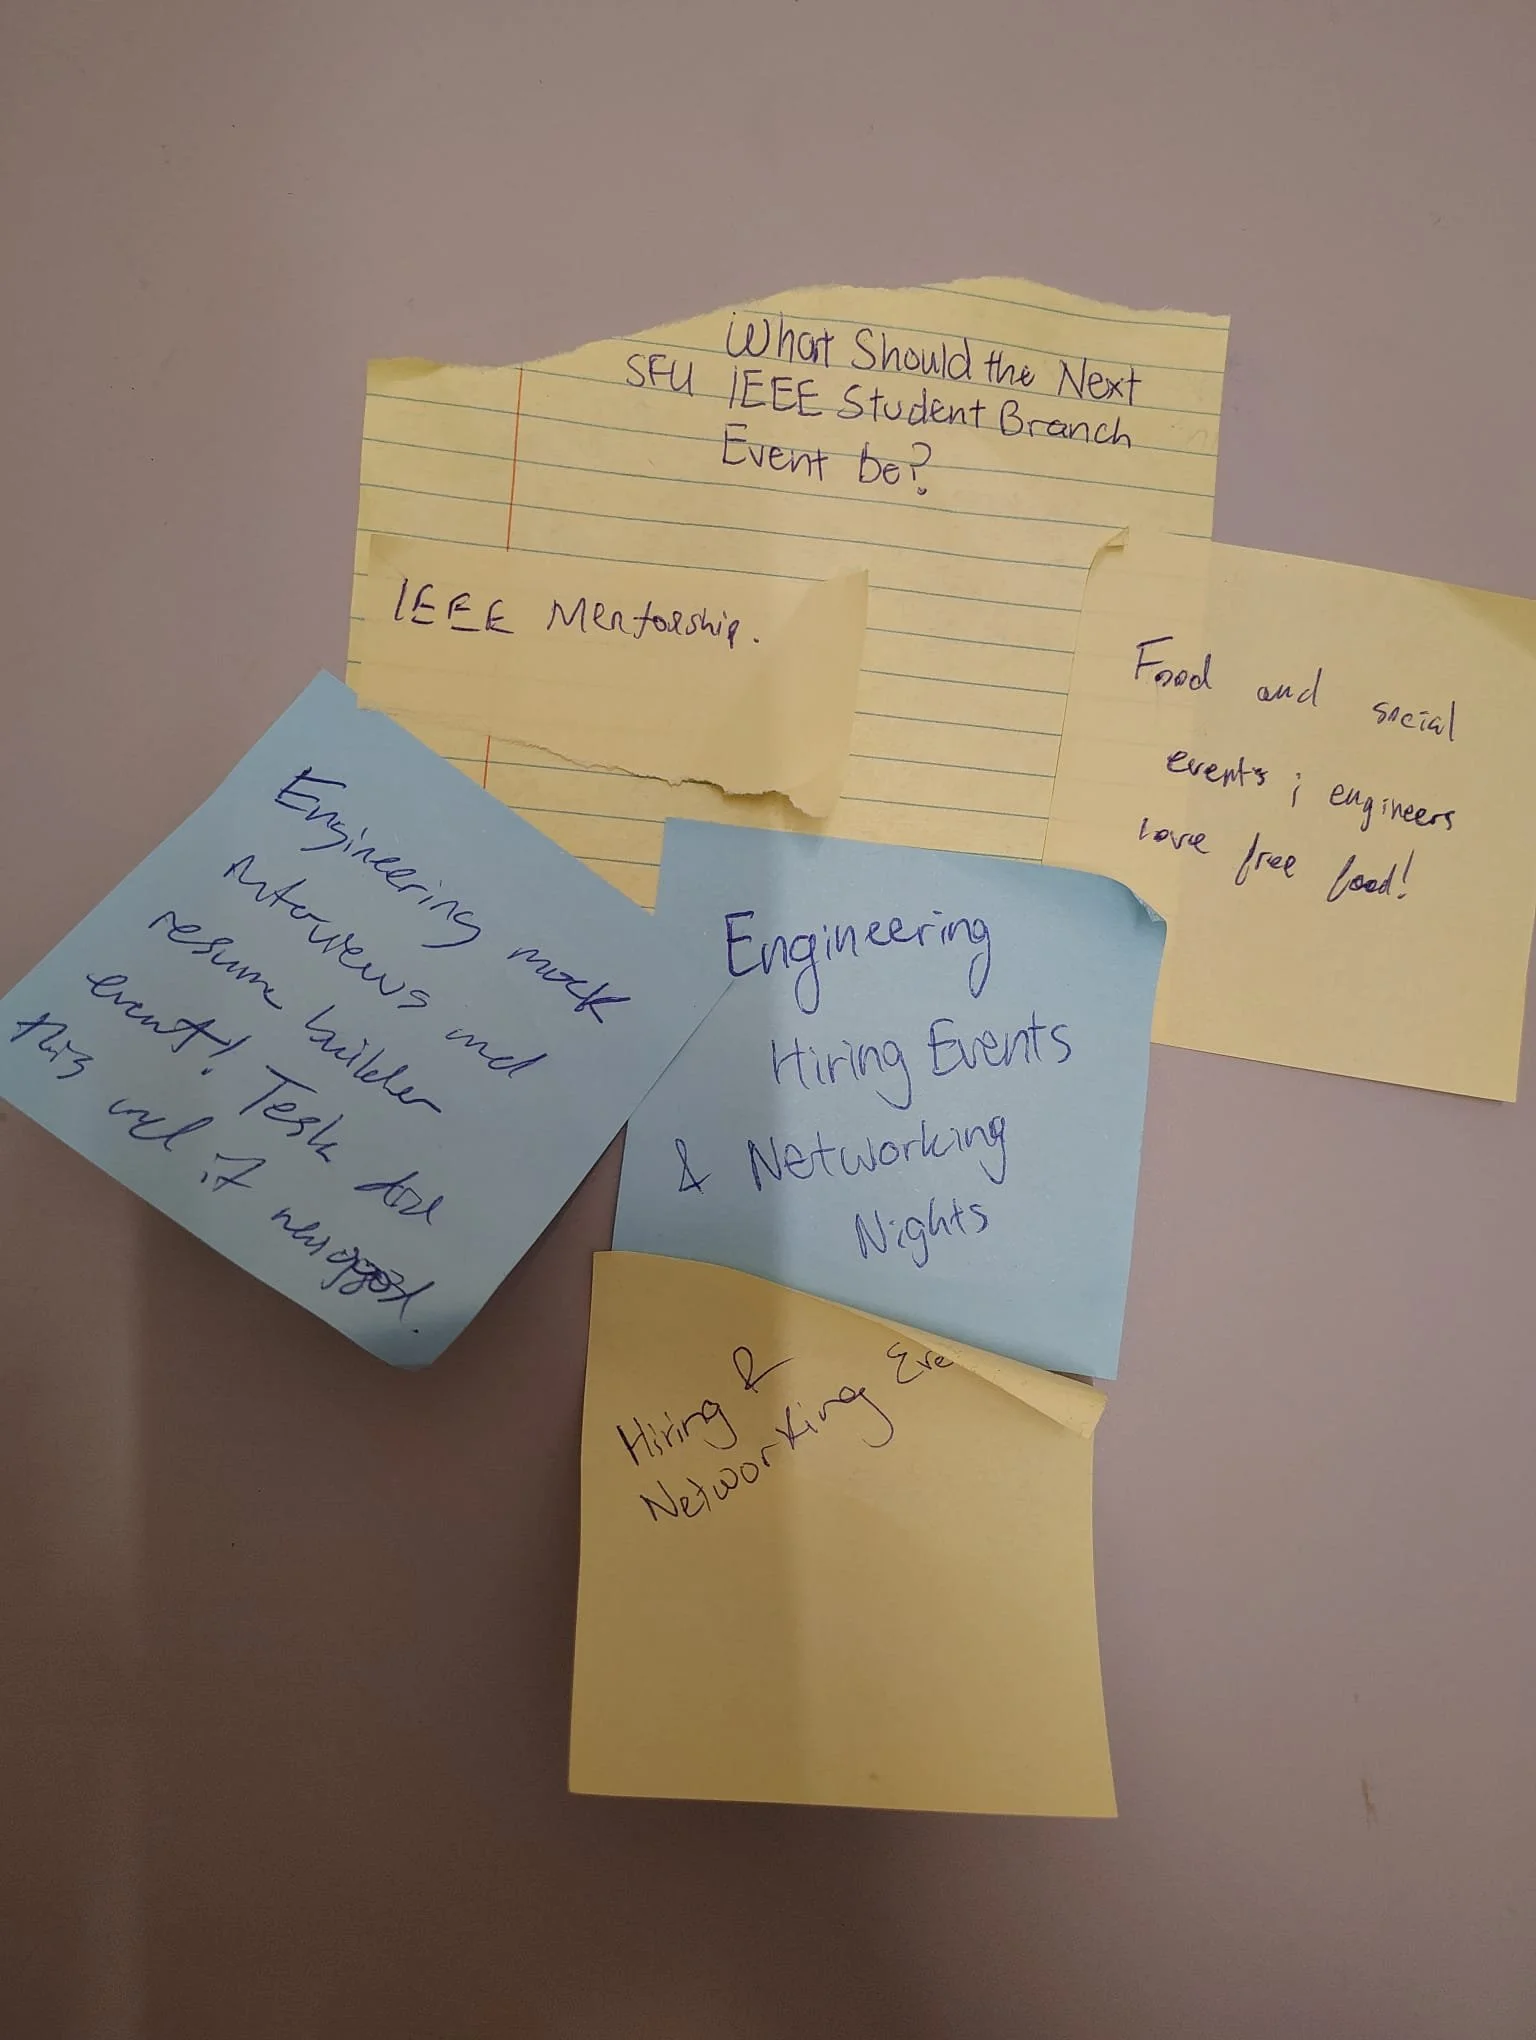 What Should the Next
SFU IEEE Student Branch
Event be?
IEEE Mentorship.
Food and social
events; engineers
love free food!
Engineering mock
interviews and
resume builder
event! Tesla did
this and it helped.
Engineering
Hiring Events
& Networking
Nights
Hiring &
Networking Eve